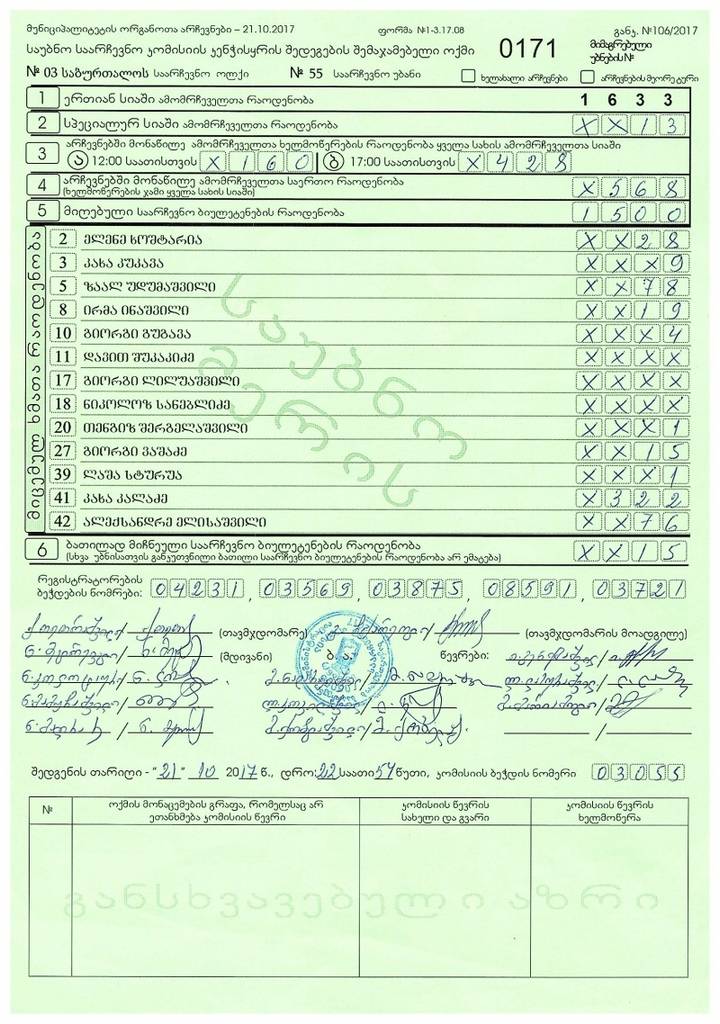 მუნიციპალიტეტის ორგანოთა არჩევნები – 21.10.2017 ფორმა №1-3.17.08 განკ. №106/2017
საუბნო საარჩევნო კომისიის კენჭისყრის შედეგების შემაჯამებელი ოქმი 0171 მიმაგრებული უბნების №
№ 03 საბურთალოს საარჩევნო ოლქი № 55 საარჩევნო უბანი ხელახალი არჩევნები არჩევნების მეორე ტური
1 ერთიან სიაში ამომრჩეველთა რაოდენობა 1 6 3 3
2 სპეციალურ სიაში ამომრჩეველთა რაოდენობა X X 1 3
3 არჩევნებში მონაწილე ამომრჩეველთა ხელმოწერების რაოდენობა ყველა სახის ამომრჩეველთა სიაში
ა 12:00 საათისთვის X 1 6 0 ბ 17:00 საათისთვის X 4 2 8
4 არჩევნებში მონაწილე ამომრჩეველთა საერთო რაოდენობა X 5 6 8
(ხელმოწერების ჯამი ყველა სახის სიაში)
5 მიღებული საარჩევნო ბიულეტენების რაოდენობა 1 5 0 0
მიცემულ ხმათა რაოდენობა
2 ელენე ხოშტარია X X 2 8
3 კახა კუკავა X X X 9
5 ზაალ უდუმაშვილი X X 7 8
8 ირმა ინაშვილი X X 1 9
10 გიორგი გუგავა X X X 4
11 დავით შუკაკიძე X X X X
17 გიორგი ლილუაშვილი X X X X
18 ნიკოლოზ სანებლიძე X X X X
20 თენგიზ შერგელაშვილი X X X 1
27 გიორგი ვაშაძე X X 1 5
39 ლაშა სტურუა X X X 1
41 კახა კალაძე X 3 2 2
42 ალექსანდრე ელისაშვილი X X 7 6
საუბნო
მერის
6 ბათილად მიჩნეული საარჩევნო ბიულეტენების რაოდენობა X X 1 5
(სხვა უბნისათვის განკუთვნილი ბათილი საარჩევნო ბიულეტენების რაოდენობა არ ემატება)
რეგისტრატორების ბეჭდების ნომრები: 04231, 03569, 03875, 08591, 03721
(თავმჯდომარე) (თავმჯდომარის მოადგილე)
(მდივანი) ბ. ა. წევრები:
შედგენის თარიღი - "21" 10 2017 წ., დრო: 22 საათი 54 წუთი, კომისიის ბეჭდის ნომერი 03055
№ ოქმის მონაცემების გრაფა, რომელსაც არ ეთანხმება კომისიის წევრი კომისიის წევრის სახელი და გვარი კომისიის წევრის ხელმოწერა
განსხვავებული აზრი